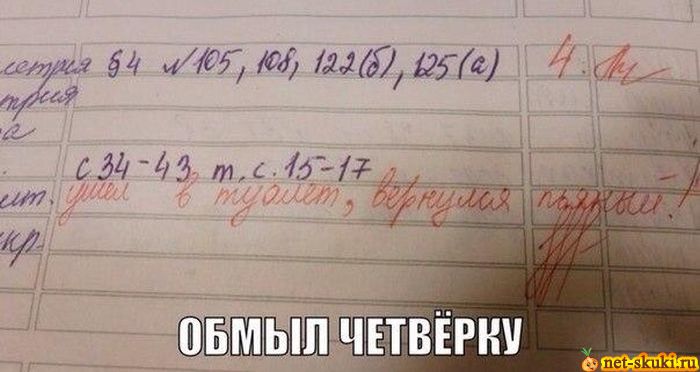 §4 №105, 108, 122(б), 125(а) 4.
с 34-43 т. с. 15-17
ушел в туалет, вернулся пьяный!
ОБМЫЛ ЧЕТВЁРКУ
net-skuki.ru